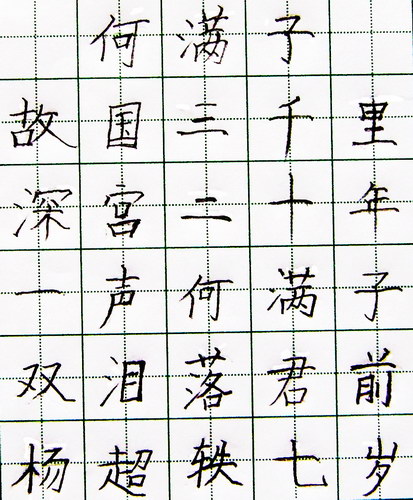 何满子
故国三千里
深宫二十年
一声何满子
双泪落君前
杨超轶七岁